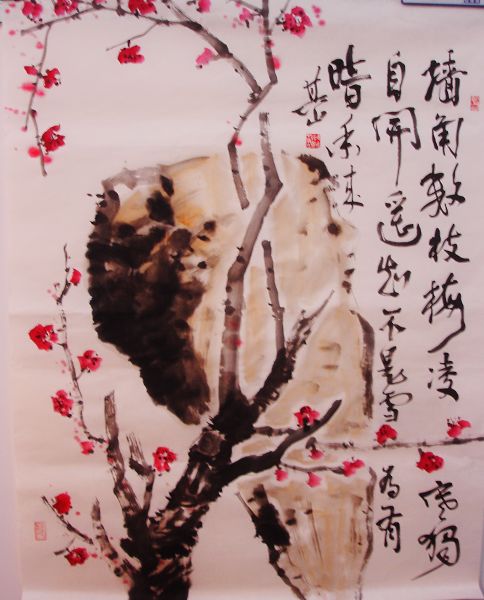 墙角数枝梅凌寒独
自開遥知不是雪為有
暗香来